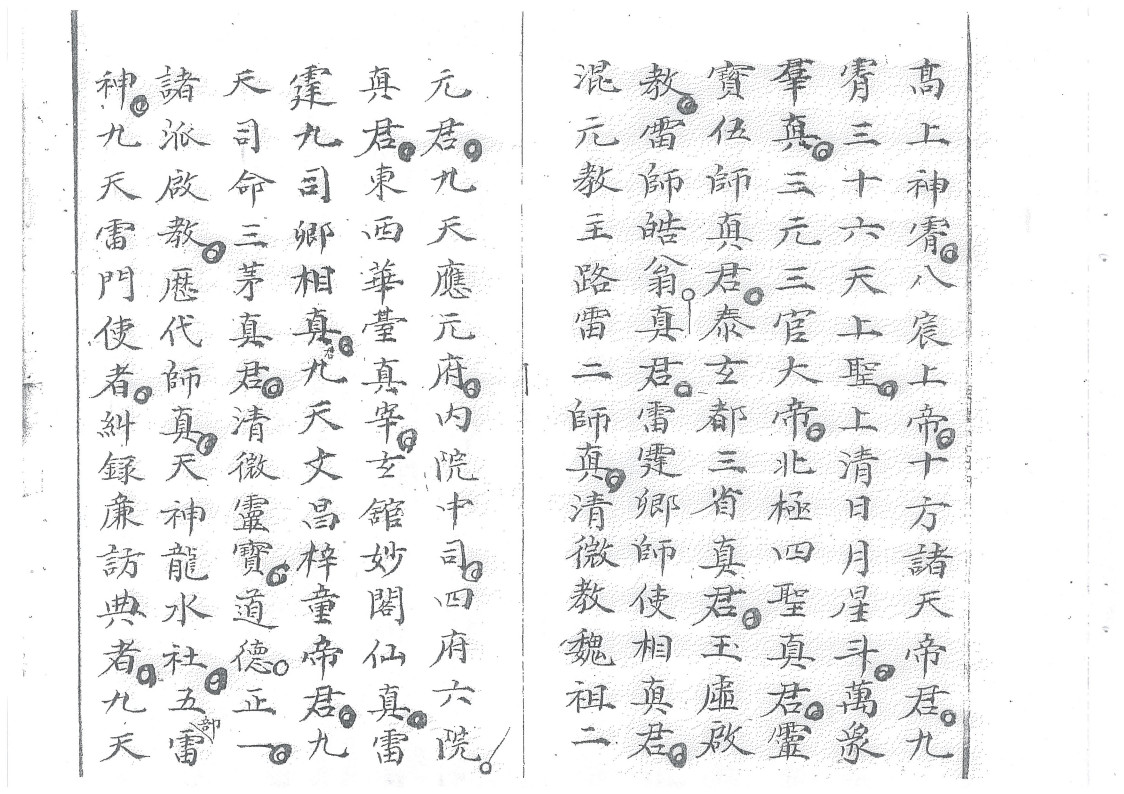 高上神霄八宸上帝十方諸天帝君九
霄三十六天上聖上清日月星斗萬象
羣真三元三官大帝北極四聖真君靈
寶伍師真君泰玄都三省真君玉虛啟
教雷師皓翁真君雷霆卿師使相真君
混元教主路雷二師真清微教魏祖二
元君九天應元府內院中司四府六院
真君東西華臺真宰玄館妙閣仙真雷
霆九司卿相真君九天文昌梓童帝君九
天司命三茅真君清微靈寶道德正一
諸派啟教歷代師真天神龍水社五雷部
神九天雷門使者糾録廉訪典者九天